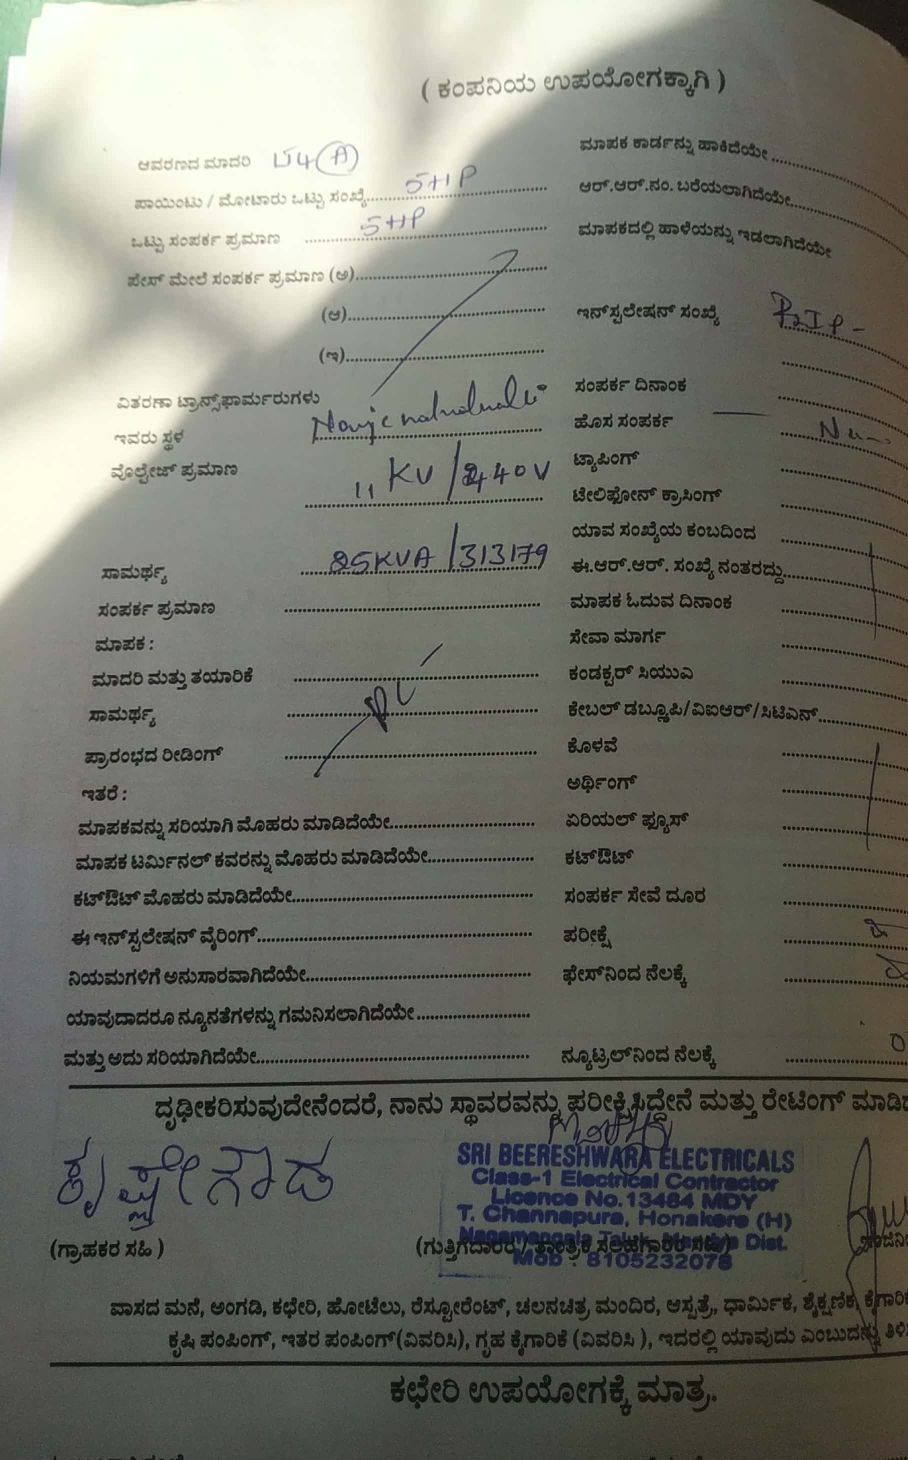 ( ಕಂಪನಿಯ ಉಪಯೋಗಕ್ಕಾಗಿ )
ಆವರಣದ ಮಾದರಿ (A)
ಪಾಯಿಂಟು / ಮೋಟಾರು ಒಟ್ಟು ಸಂಖ್ಯೆ 5HP
ಒಟ್ಟು ಸಂಪರ್ಕ ಪ್ರಮಾಣ 5HP
ಪೇಸ್ ಮೇಲೆ ಸಂಪರ್ಕ ಪ್ರಮಾಣ (ಅ)
(ಆ)
(ಇ)
ವಿತರಣಾ ಟ್ರಾನ್ಸ್‌ಫಾರ್ಮರುಗಳು
ಇವರು ಸ್ಥಳ
ವೊಲ್ಟೇಜ್ ಪ್ರಮಾಣ 11 KV / 440V
ಸಾಮರ್ಥ್ಯ 25KVA / 313179
ಸಂಪರ್ಕ ಪ್ರಮಾಣ
ಮಾಪಕ :
ಮಾದರಿ ಮತ್ತು ತಯಾರಿಕೆ
ಸಾಮರ್ಥ್ಯ
ಪ್ರಾರಂಭದ ರೀಡಿಂಗ್
ಇತರೆ :
ಮಾಪಕವನ್ನು ಸರಿಯಾಗಿ ಮೊಹರು ಮಾಡಿದೆಯೇ
ಮಾಪಕ ಟರ್ಮಿನಲ್ ಕವರನ್ನು ಮೊಹರು ಮಾಡಿದೆಯೇ
ಕಟ್‌ಔಟ್ ಮೊಹರು ಮಾಡಿದೆಯೇ
ಈ ಇನ್‌ಸ್ಟಲೇಷನ್ ವೈರಿಂಗ್
ನಿಯಮಗಳಿಗೆ ಅನುಸಾರವಾಗಿದೆಯೇ
ಯಾವುದಾದರೂ ನ್ಯೂನತೆಗಳನ್ನು ಗಮನಿಸಲಾಗಿದೆಯೇ
ಮತ್ತು ಅದು ಸರಿಯಾಗಿದೆಯೇ
ಮಾಪಕ ಕಾರ್ಡನ್ನು ಹಾಕಿದೆಯೇ
ಆರ್.ಆರ್.ನಂ. ಬರೆಯಲಾಗಿದೆಯೇ
ಮಾಪಕದಲ್ಲಿ ಹಾಳೆಯನ್ನು ಇಡಲಾಗಿದೆಯೇ
ಇನ್‌ಸ್ಟಲೇಷನ್ ಸಂಖ್ಯೆ
ಸಂಪರ್ಕ ದಿನಾಂಕ
ಹೊಸ ಸಂಪರ್ಕ
ಟ್ಯಾಪಿಂಗ್
ಟೇಲಿಫೋನ್ ಕ್ರಾಸಿಂಗ್
ಯಾವ ಸಂಖ್ಯೆಯ ಕಂಬದಿಂದ
ಈ.ಆರ್.ಆರ್. ಸಂಖ್ಯೆ ನಂತರದ್ದು
ಮಾಪಕ ಓದುವ ದಿನಾಂಕ
ಸೇವಾ ಮಾರ್ಗ
ಕಂಡಕ್ಟರ್ ಸಿಯುಎ
ಕೇಬಲ್ ಡಬ್ಲ್ಯೂಪಿ/ವಿಐಆರ್/ಸಿಟಿಎನ್
ಕೊಳವೆ
ಅರ್ಥಿಂಗ್
ಏರಿಯಲ್ ಫ್ಯೂಸ್
ಕಟ್‌ಔಟ್
ಸಂಪರ್ಕ ಸೇವೆ ದೂರ
ಪರೀಕ್ಷೆ
ಫೇಸ್‌ನಿಂದ ನೆಲಕ್ಕೆ
ನ್ಯೂಟ್ರಲ್‌ನಿಂದ ನೆಲಕ್ಕೆ
ದೃಢೀಕರಿಸುವುದೇನೆಂದರೆ, ನಾನು ಸ್ಥಾವರವನ್ನು ಪರೀಕ್ಷಿಸಿದ್ದೇನೆ ಮತ್ತು ರೇಟಿಂಗ್
SRI BEERESHWARA ELECTRICALS
Class-1 Electrical Contractor
Licence No.13464 MDY
T. Channapura, Honakere (H)
Nagamangala Taluk, Mandya Dist.
Mob : 8105232078
(ಗ್ರಾಹಕರ ಸಹಿ )
(ಗುತ್ತಿಗೆದಾರರ / ತಾಂತ್ರಿಕ ಸಲಹಗಾರರ ಸಹಿ)
ವಾಸದ ಮನೆ, ಅಂಗಡಿ, ಕಛೇರಿ, ಹೋಟೆಲು, ರೆಸ್ಟೋರೆಂಟ್, ಚಲನಚಿತ್ರ ಮಂದಿರ, ಆಸ್ಪತ್ರೆ, ಧಾರ್ಮಿಕ, ಶೈಕ್ಷಣಿಕ,
ಕೃಷಿ ಪಂಪಿಂಗ್, ಇತರ ಪಂಪಿಂಗ್(ವಿವರಿಸಿ), ಗೃಹ ಕೈಗಾರಿಕೆ (ವಿವರಿಸಿ ), ಇದರಲ್ಲಿ ಯಾವುದು ಎಂಬುದನ್ನು
ಕಛೇರಿ ಉಪಯೋಗಕ್ಕೆ ಮಾತ್ರ.